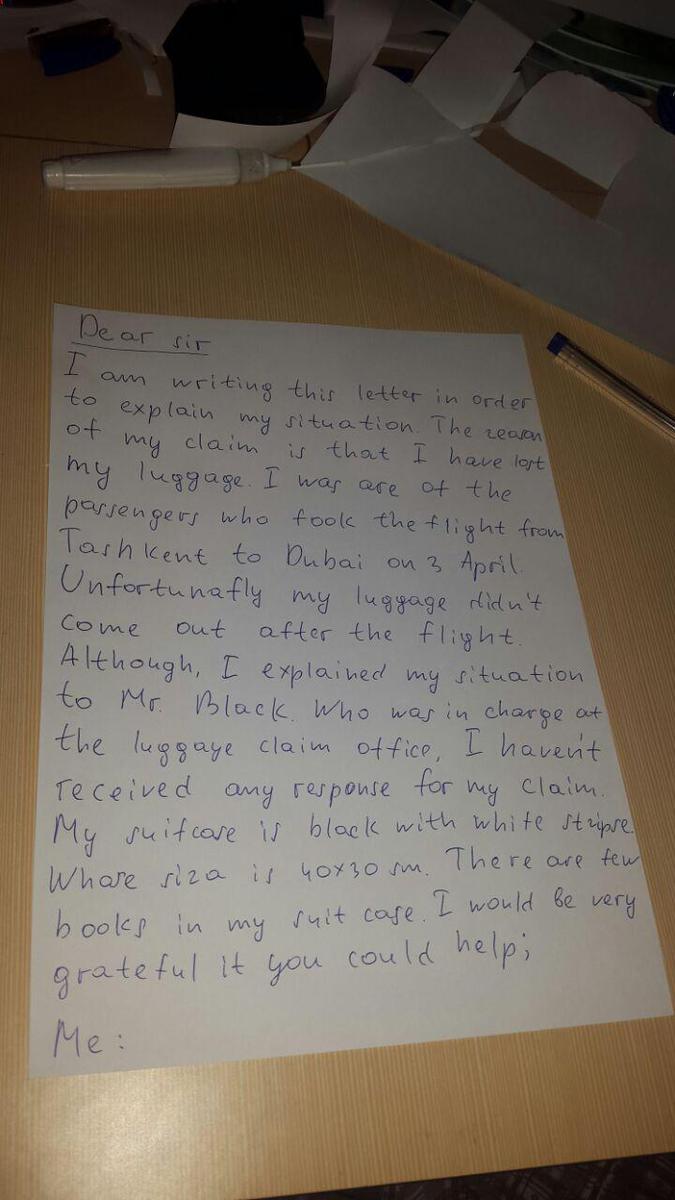 Dear sir
I am writing this letter in order
to explain my situation. The reason
of my claim is that I have lost
my luggage. I was are of the
passengers who fook the flight from
Tashkent to Dubai on 3 April.
Unfortunafly my luggage didn't
come out after the flight.
Although, I explained my situation
to Mr. Black. Who was in charge at
the luggaye claim office, I haven't
received any response for my claim.
My suifcase is black with white stripse.
Whose siza is 40x30 sm. There are few
books in my suit case. I would be very
grateful it you could help;
Me: